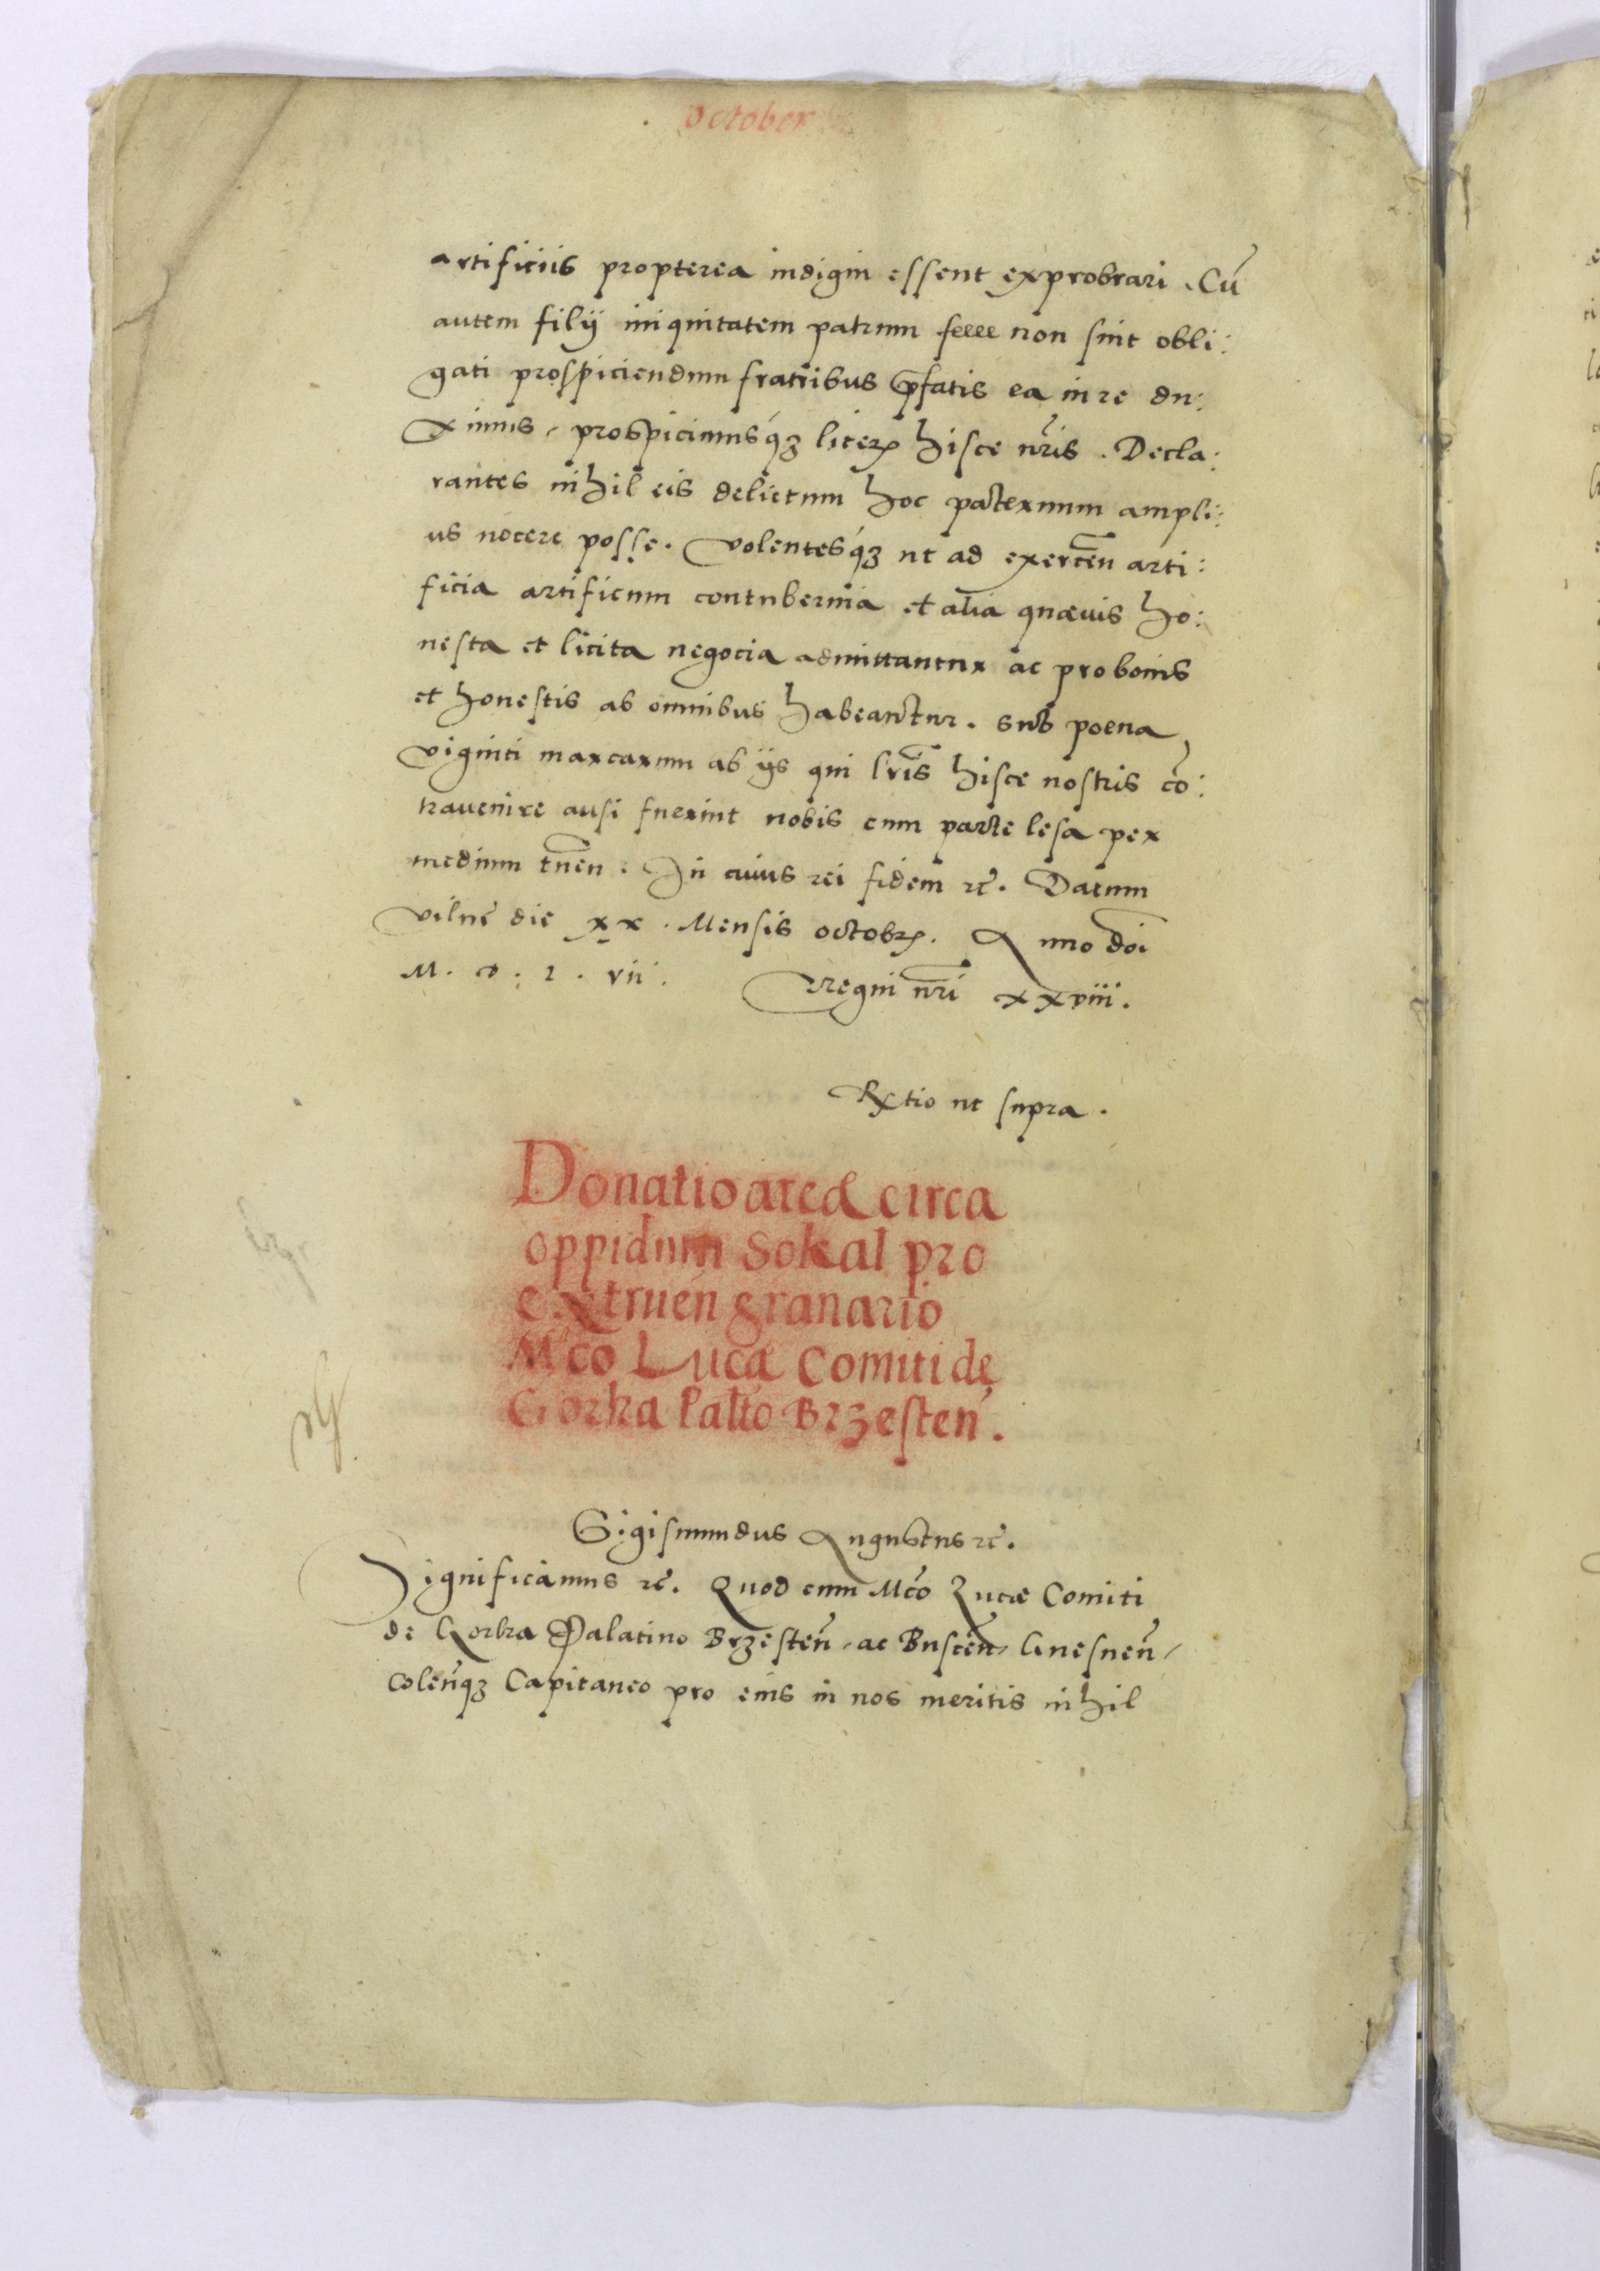 october
artificiis propterea indigni essent exprobrari . Cū
autem filij iniquitatem patrum non sint obli:
gati prospiciendum fratribus p̄fatis ea in re du:
ximus, prospicimusq́ʒ literꝭ hisce nr̄is . Decla:
rantes nihil eis delictum hoc paternum ampli:
us nocere posse. volentesq́ʒ ut ad exercen̄ arti:
ficia artificum contubernia et alia quævis ho:
nesta et licita negocia admittantur ac pro bonis
et honestis ab omnibus habeantur. sub poena
viginti marcarum ab ijs qui lr̄is hisce nostris cō:
travenire ausi fuerint nobis cum parte lesa per
medium luen̄. In cuius rei fidem rc̄. Datum
vilnę die xx. Mensis octobrꝭ. Anno doī
M. D. L. vii. Regni nr̄i xxviii.
Rxtio ut supra .
Donatio areæ circa
oppidum Sokal pro
extruen̄ granario
Mco Lucæ Comiti de
Gorka Palto Brzesten̄.
Sigismundus Augustus rc̄.
Significamus rc̄. Quod cum Mc̄o Lucæ Comiti
de Gorka Palatino Brzesten̄, ac Buscen̄, Gnesnen̄,
Colen̄qʒ Capitaneo pro eius in nos meritis nihil